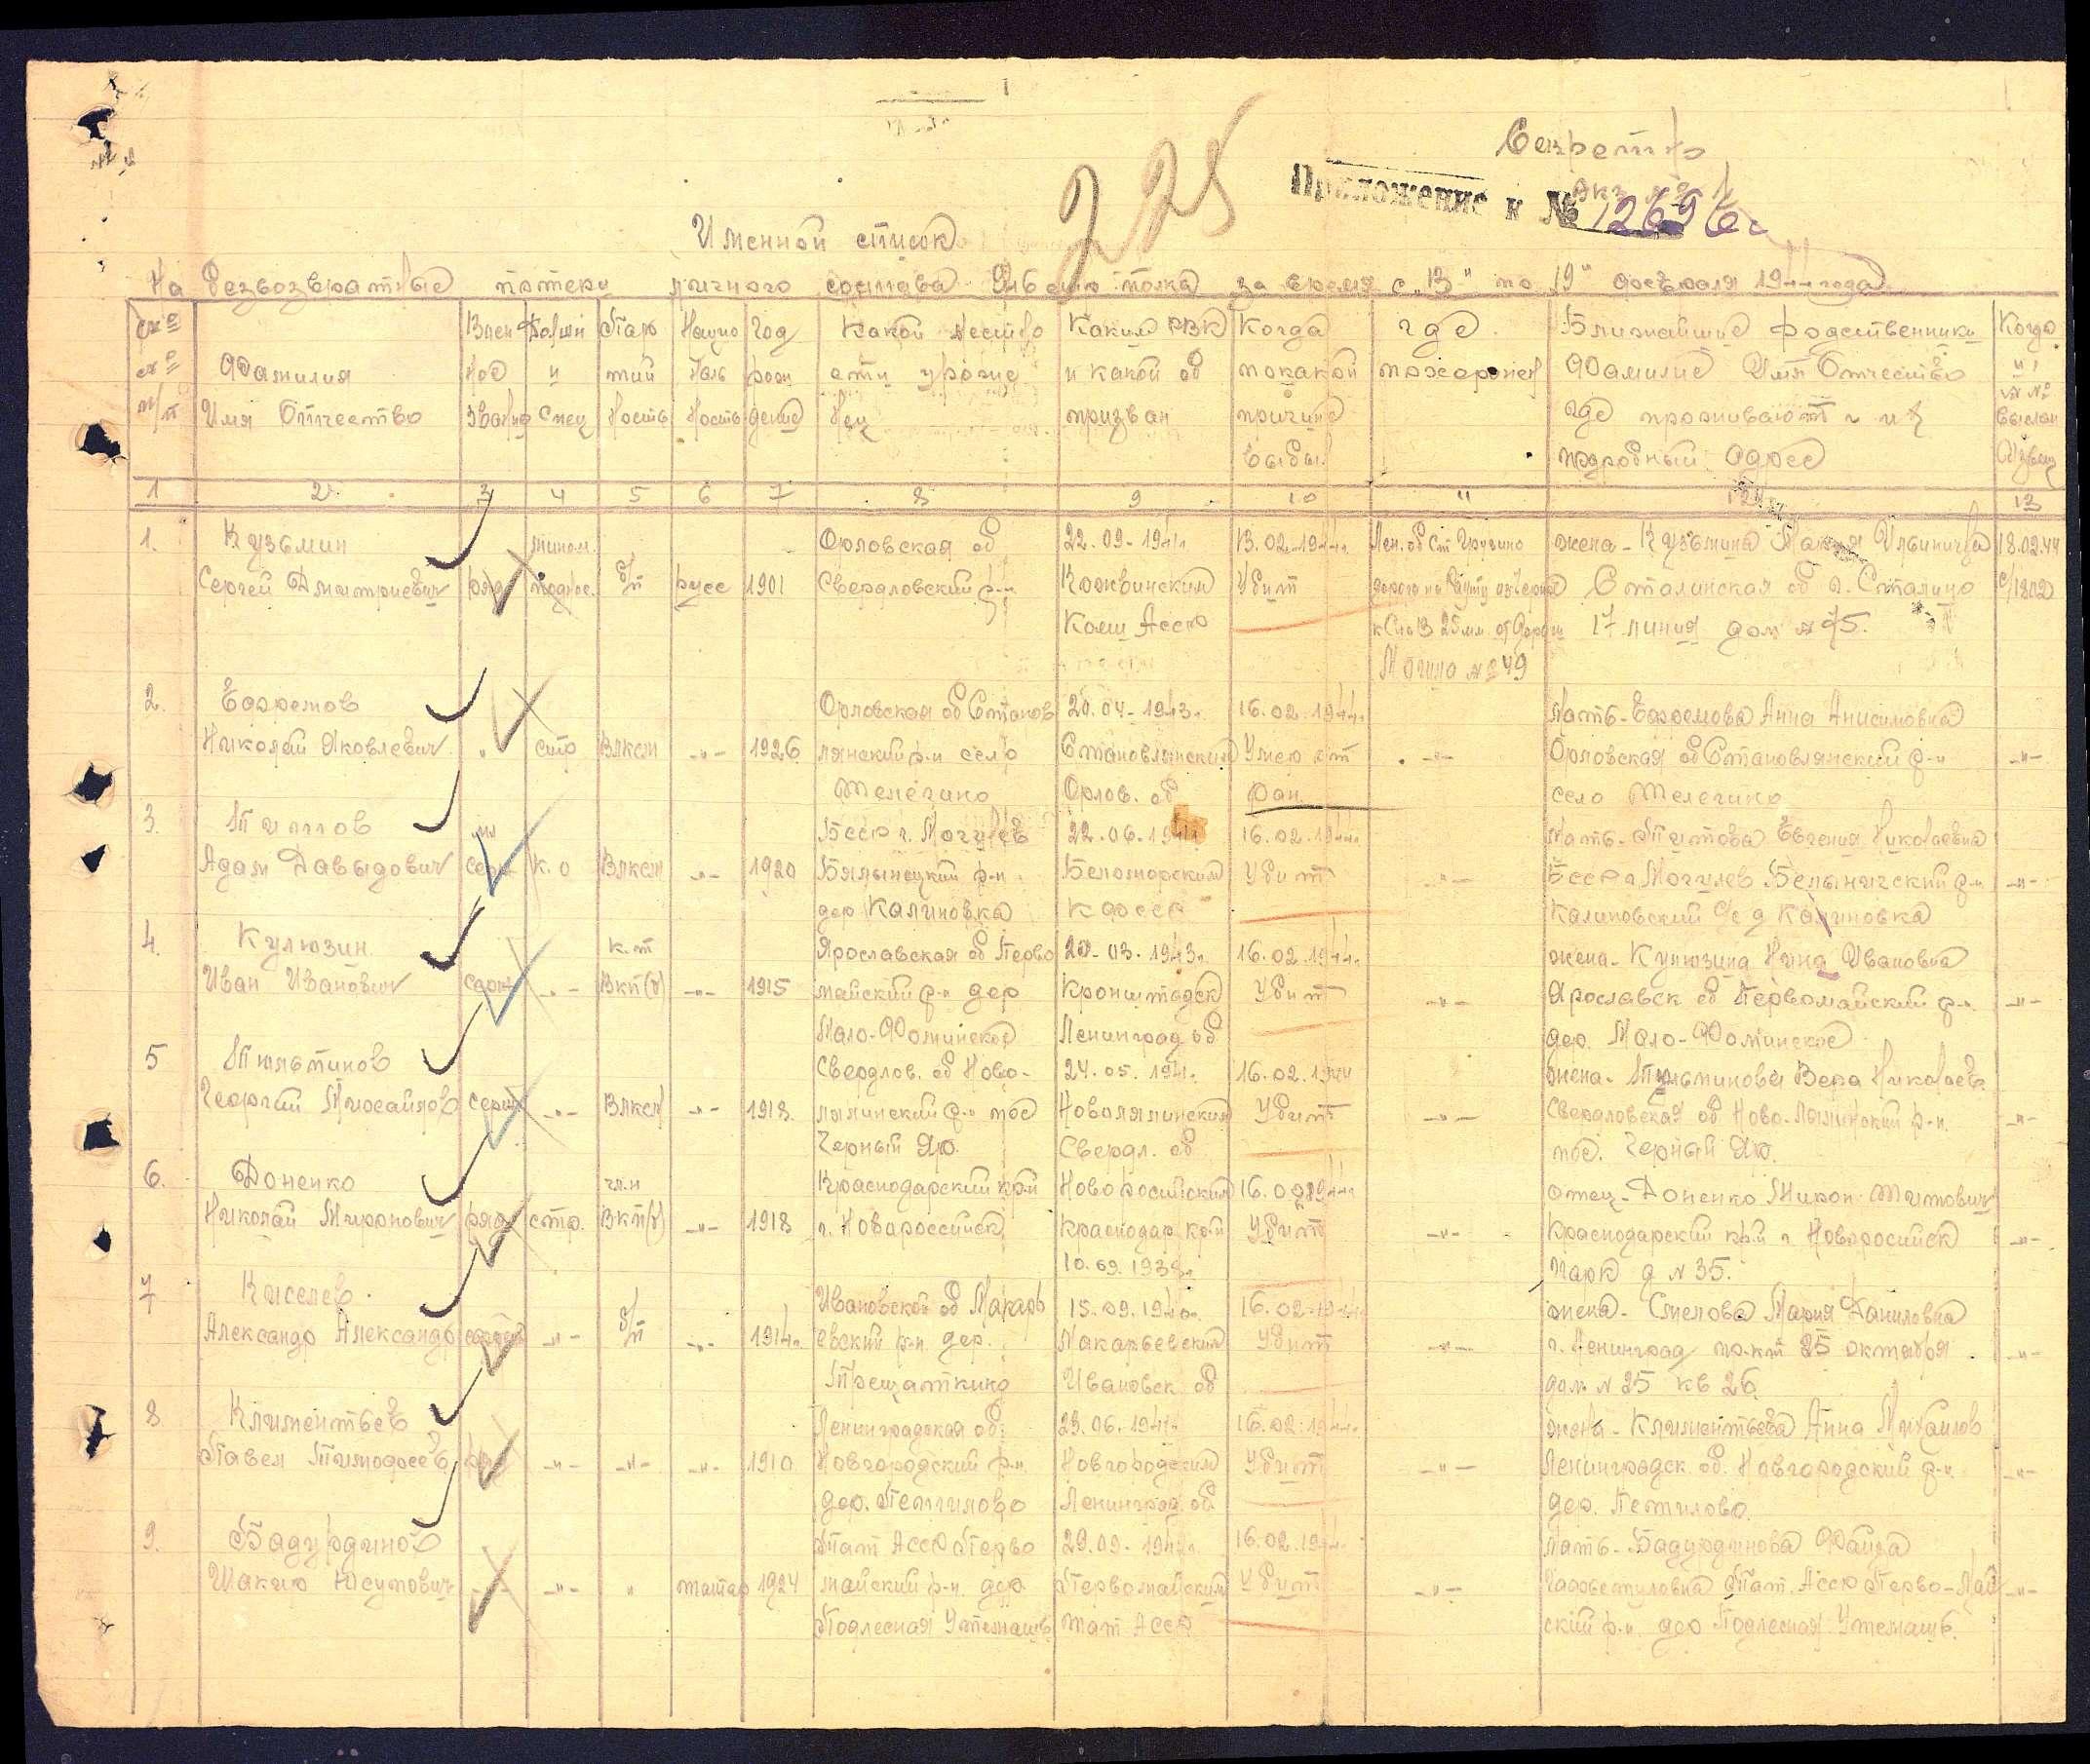 Секретно
Экз № 1
Приложение к № 12696с
225
Именной список
На безвозвратные потери личного состава полка за время с "13" по "19" февраля 1944 года
№ № п/п
Фамилия Имя Отчество
Воен ное звание
Должн и спец
Парт ийность
Нацио наль ность
Год рождения
Какой местно сти уроже нец
Каким РВК и какой об призван
Когда по какой причине выбыл
где похоронен
Ближайшие родственники Фамилие Имя Отчество где проживают и их подробный адрес
Когда и № выслан извещ
1 2 3 4 5 6 7 8 9 10 11 12 13
1. Кузьмин
Сергей Дмитриевич ряд б/п русс 1901
Орловская об
Свердловский р-н
22.09-1941г.
Кожвинским
Коми Асср
13.02-1944г.
Убит
Лен. об Ст Грузино
Могила №49
жена - Кузьмина Мария Ильинична
Сталинская об г. Сталино
17 линия дом № 75.
18.02.44
2. Ефремов
Николай Яковлевич " стр Влксм -"- 1926
Орловская об Станов
лянский р-н село
Телегино
20.04-1943г.
Становлянским
Орлов. об
16.02.1944г.
Умер от
ран
-"-
Мать-Ефремова Анна Анисимовна
Орловская об Становлянский р-н
село Телегино
-"-
3. Титов
Адам Давыдович мл серж к.о Влксм -"- 1920
Бсср г. Могилев
Бялыницкий р-н
дер Калиновка
22.06.1941г.
Беломорским
Кфсср
16.02.1944г.
Убит
-"-
Мать-Титова Евгения Николаевна
Бсср г Могилев Белыничский р-н
Калиновский с/с д Калиновка
-"-
4. Кулюзин
Иван Иванович серж -"- к.т Вкп(б) -"- 1915
Ярославская об Перво
майский р-н дер
Мало-Фоминское
20.03.1943г.
Кронштадск
Ленинград об
16.02.1944г.
Убит
-"-
жена-Кулюзина Нина Ивановна
Ярославск об Первомайский р-н
дер. Мало-Фоминское
-"-
5 Тюльтинов
Георгий Михайлов серж -"- Влксм -"- 1918.
Свердлов. об Ново-
лялинский р-н пос
Черный Яр.
24.05.194г.
Новолялинским
Свердл. об
16.02.1944
Убит
-"-
Вера Николаев.
Свердловская об Ново-Лялинский р-н.
пос. Черный Яр.
-"-
6. Доненко
Николай Миронович ряд стр. чл.н Вкп(б) -"- 1918
Краснодарский край
г. Новороссийск
Новоросийским
Краснодар кр-й
10.09.1938г.
16.02.1944г.
Убит
-"-
отец-Доненко Мирон Титович
Краснодарский кр-й г Новоросийск
Парк д № 35.
-"-
7 Киселев
Александр Александр -"- б/п -"- 1914г.
Ивановской об Макарь
евский р-н дер.
Трещаткино
15.09.1940г.
Макарьевским
Ивановск об
16.02.1944г.
Убит
-"-
жена- Смелова Мария Даниловна
г. Ленинград пр-кт 25 октября
дом № 25 кв 26
-"-
8 Климентьев
Павел Тимофеев ряд -"- -"- -"- 1910
Ленинградская об.
Новгородский р-н
дер. Петилово
23.06.1941г.
Новгородским
Ленинград. об
16.02.1944г.
Убит
-"-
жена-Климентьева Анна Михайлов
Ленинградск. об. Новгородский р-н
дер. Петилово.
-"-
9. Бадурдинов
Шакир Юсупович -"- " татар 1924
Тат Асср Перво
майский р-н. дер
Подлесная Утемашь
29.09.194г.
Первомайским
Тат Асср
16.02.1944г.
Убит
-"-
Мать-Бадурдинова Фаиза
Тат. Асср Перво-Май
ский р-н. дер Подлесная Утемашь.
-"-